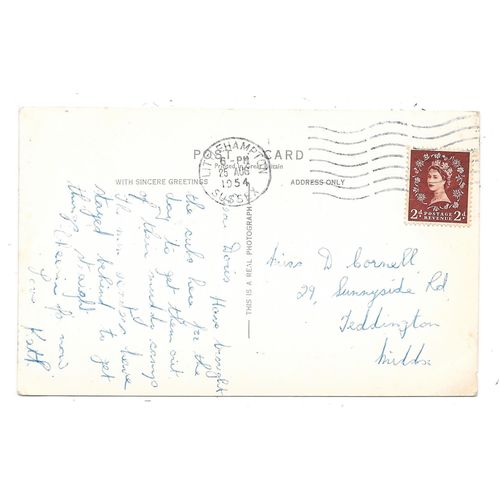 POST CARD
Printed in Great Britain
WITH SINCERE GREETINGS
ADDRESS ONLY
LITTLEHAMPTON
6 - PM
25 AUG
1954
SUSSEX
2d POSTAGE REVENUE 2d
THIS IS A REAL PHOTOGRAPH
Dear Doris Have brought
the cubs here for the
day to get them out
of their muddy camp
The men seniors have
stayed behind to get
things straight
Cheerio for now
Miss D Cornell
29, Sunnyside Rd
Teddington
Middx